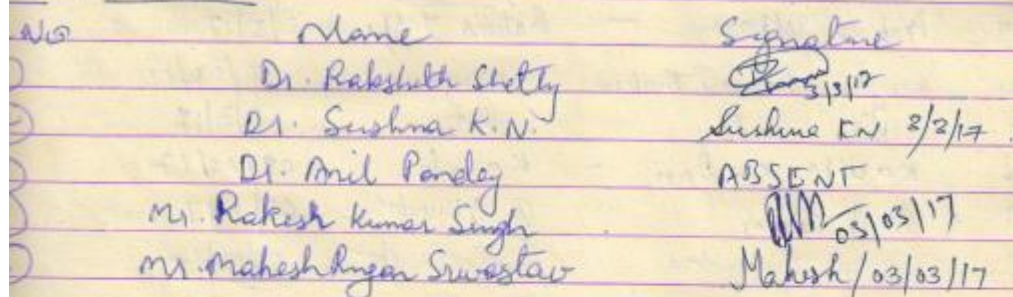 No Name Signature
Dr. Rakshith Shetty 3/3/17
Dr. Sushma K.N. Sushma KN 3/3/17
Dr. Anil Pandey ABSENT
Mr. Rakesh Kumar Singh 03/03/17
Mr. Mahesh Srivastav Mahesh/03/03/17